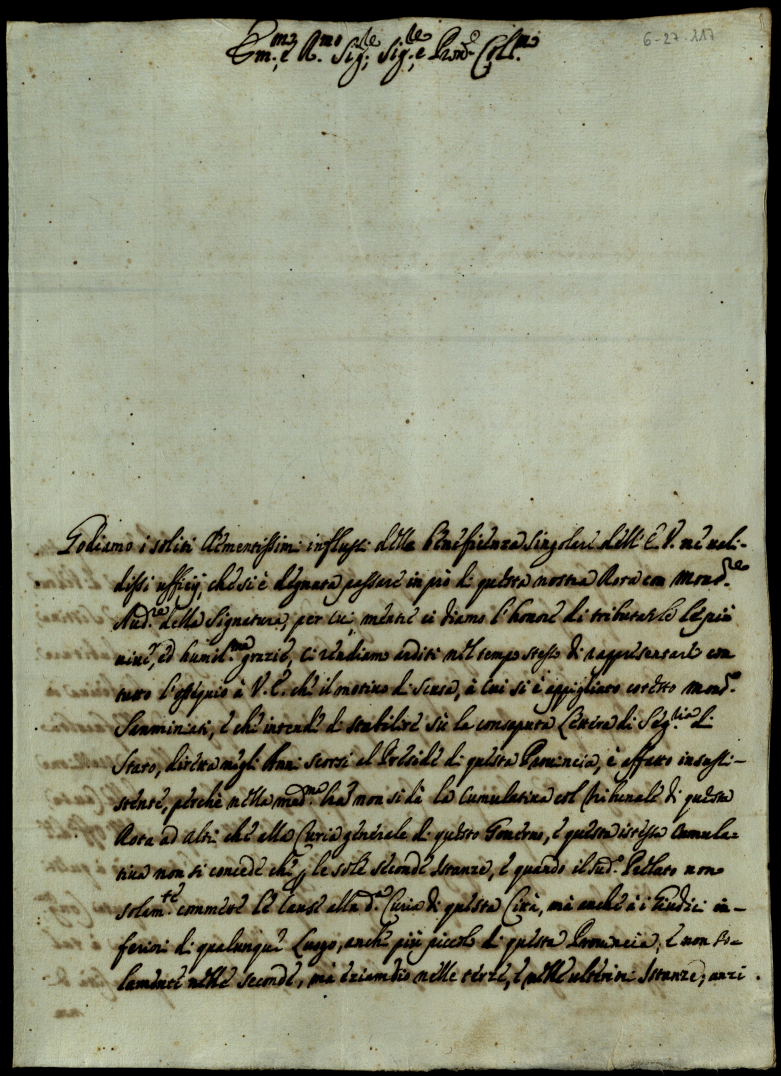 Em.mo, e R.mo Sig.re, Sig.re, e P'ron. Col.mo
6-27-117
Godiamo i soliti Clementissimi influssi della Beneficenza Singolare dell' E. V. ne' vali-
dissi ufficij, che si è degnata passare in prò di questa nostra Rota con Mons.re
Aud.re della Segnatura, per cui, mentre ci diamo l'honore di tributarle le più
vive, ed humil.me grazie, ci rendiamo arditi nel tempo stesso di rappresentare con
tutto l'ossequio à V. E. che il motivo di scusa, à cui si è appigliato cotesto Mons.re
Sanminiati, e che intende di stabilire sù la consaputa Lettera di Seg.ria di
Stato, diretta negli Anni scorsi al Preside di questa Provincia, è affatto insussi-
stente, perchè nella med.ma ha' non si dà la Cumulativa col Tribunale di questa
Rota ad altri che alla Curia generale di questo Governo, e questa istessa Cumula-
tiva non si concede che p le sole seconde Istanze, e quando il sud.o Prelato non
solam.te commette le Cause alla d.a Curia di questa Città, mà anche à i Giudici in-
feriori di qualunque Luogo, anche più piccolo di questa Provincia, e non so-
lamente nelle seconde, mà eziandio nelle terze, e nelle ulteriori Istanze; anzi